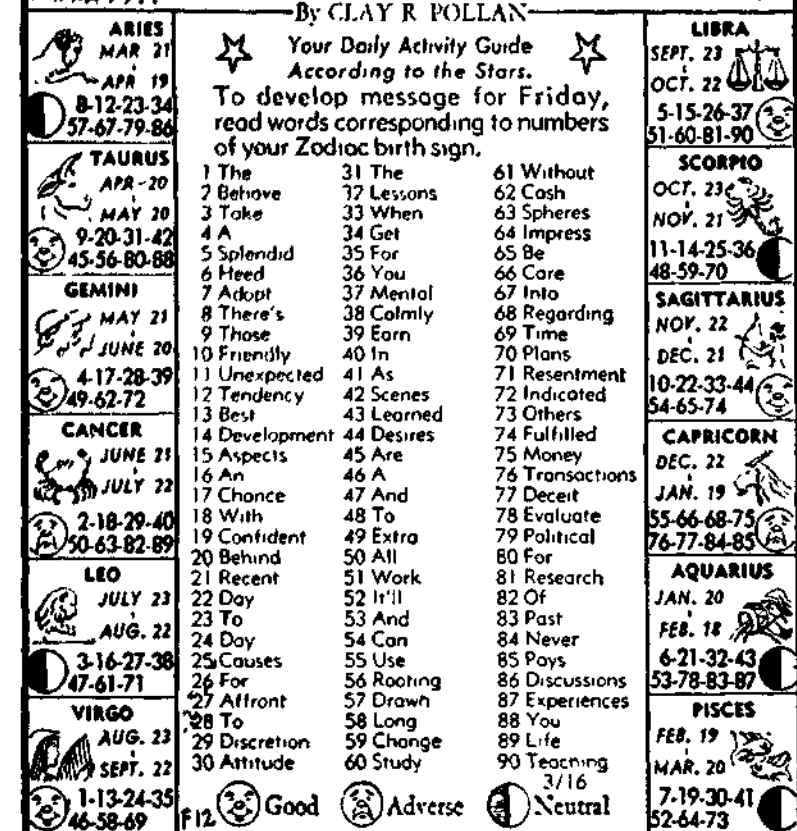 By CLAY R. POLLAN
Your Daily Activity Guide
According to the Stars.
To develop message for Friday,
read words corresponding to numbers
of your Zodiac birth sign.
ARIES
MAR 21
APR 19
8-12-23-34
57-67-79-86
TAURUS
APR-20
MAY 20
9-20-31-42
45-56-80-88
GEMINI
MAY 21
JUNE 20
4-17-28-39
49-62-72
CANCER
JUNE 21
JULY 22
2-18-29-40
50-63-82-89
LEO
JULY 23
AUG. 22
3-16-27-38
47-61-71
VIRGO
AUG. 23
SEPT. 22
1-13-24-35
46-58-69
1 The
2 Behave
3 Take
4 A
5 Splendid
6 Heed
7 Adopt
8 There's
9 Those
10 Friendly
11 Unexpected
12 Tendency
13 Best
14 Development
15 Aspects
16 An
17 Chance
18 With
19 Confident
20 Behind
21 Recent
22 Day
23 To
24 Day
25 Causes
26 For
27 Affront
28 To
29 Discretion
30 Attitude
31 The
32 Lessons
33 When
34 Get
35 For
36 You
37 Mental
38 Calmly
39 Earn
40 In
41 As
42 Scenes
43 Learned
44 Desires
45 Are
46 A
47 And
48 To
49 Extra
50 All
51 Work
52 It'll
53 And
54 Can
55 Use
56 Rooting
57 Drawn
58 Long
59 Change
60 Study
61 Without
62 Cash
63 Spheres
64 Impress
65 Be
66 Care
67 Into
68 Regarding
69 Time
70 Plans
71 Resentment
72 Indicated
73 Others
74 Fulfilled
75 Money
76 Transactions
77 Deceit
78 Evaluate
79 Political
80 For
81 Research
82 Of
83 Past
84 Never
85 Pays
86 Discussions
87 Experiences
88 You
89 Life
90 Teaching
3/16
F12 Good Adverse Neutral
LIBRA
SEPT. 23
OCT. 22
5-15-26-37
51-60-81-90
SCORPIO
OCT. 23
NOV. 21
11-14-25-36
48-59-70
SAGITTARIUS
NOV. 22
DEC. 21
10-22-33-44
54-65-74
CAPRICORN
DEC. 22
JAN. 19
55-66-68-75
76-77-84-85
AQUARIUS
JAN. 20
FEB. 18
6-21-32-43
53-78-83-87
PISCES
FEB. 19
MAR. 20
7-19-30-41
52-64-73